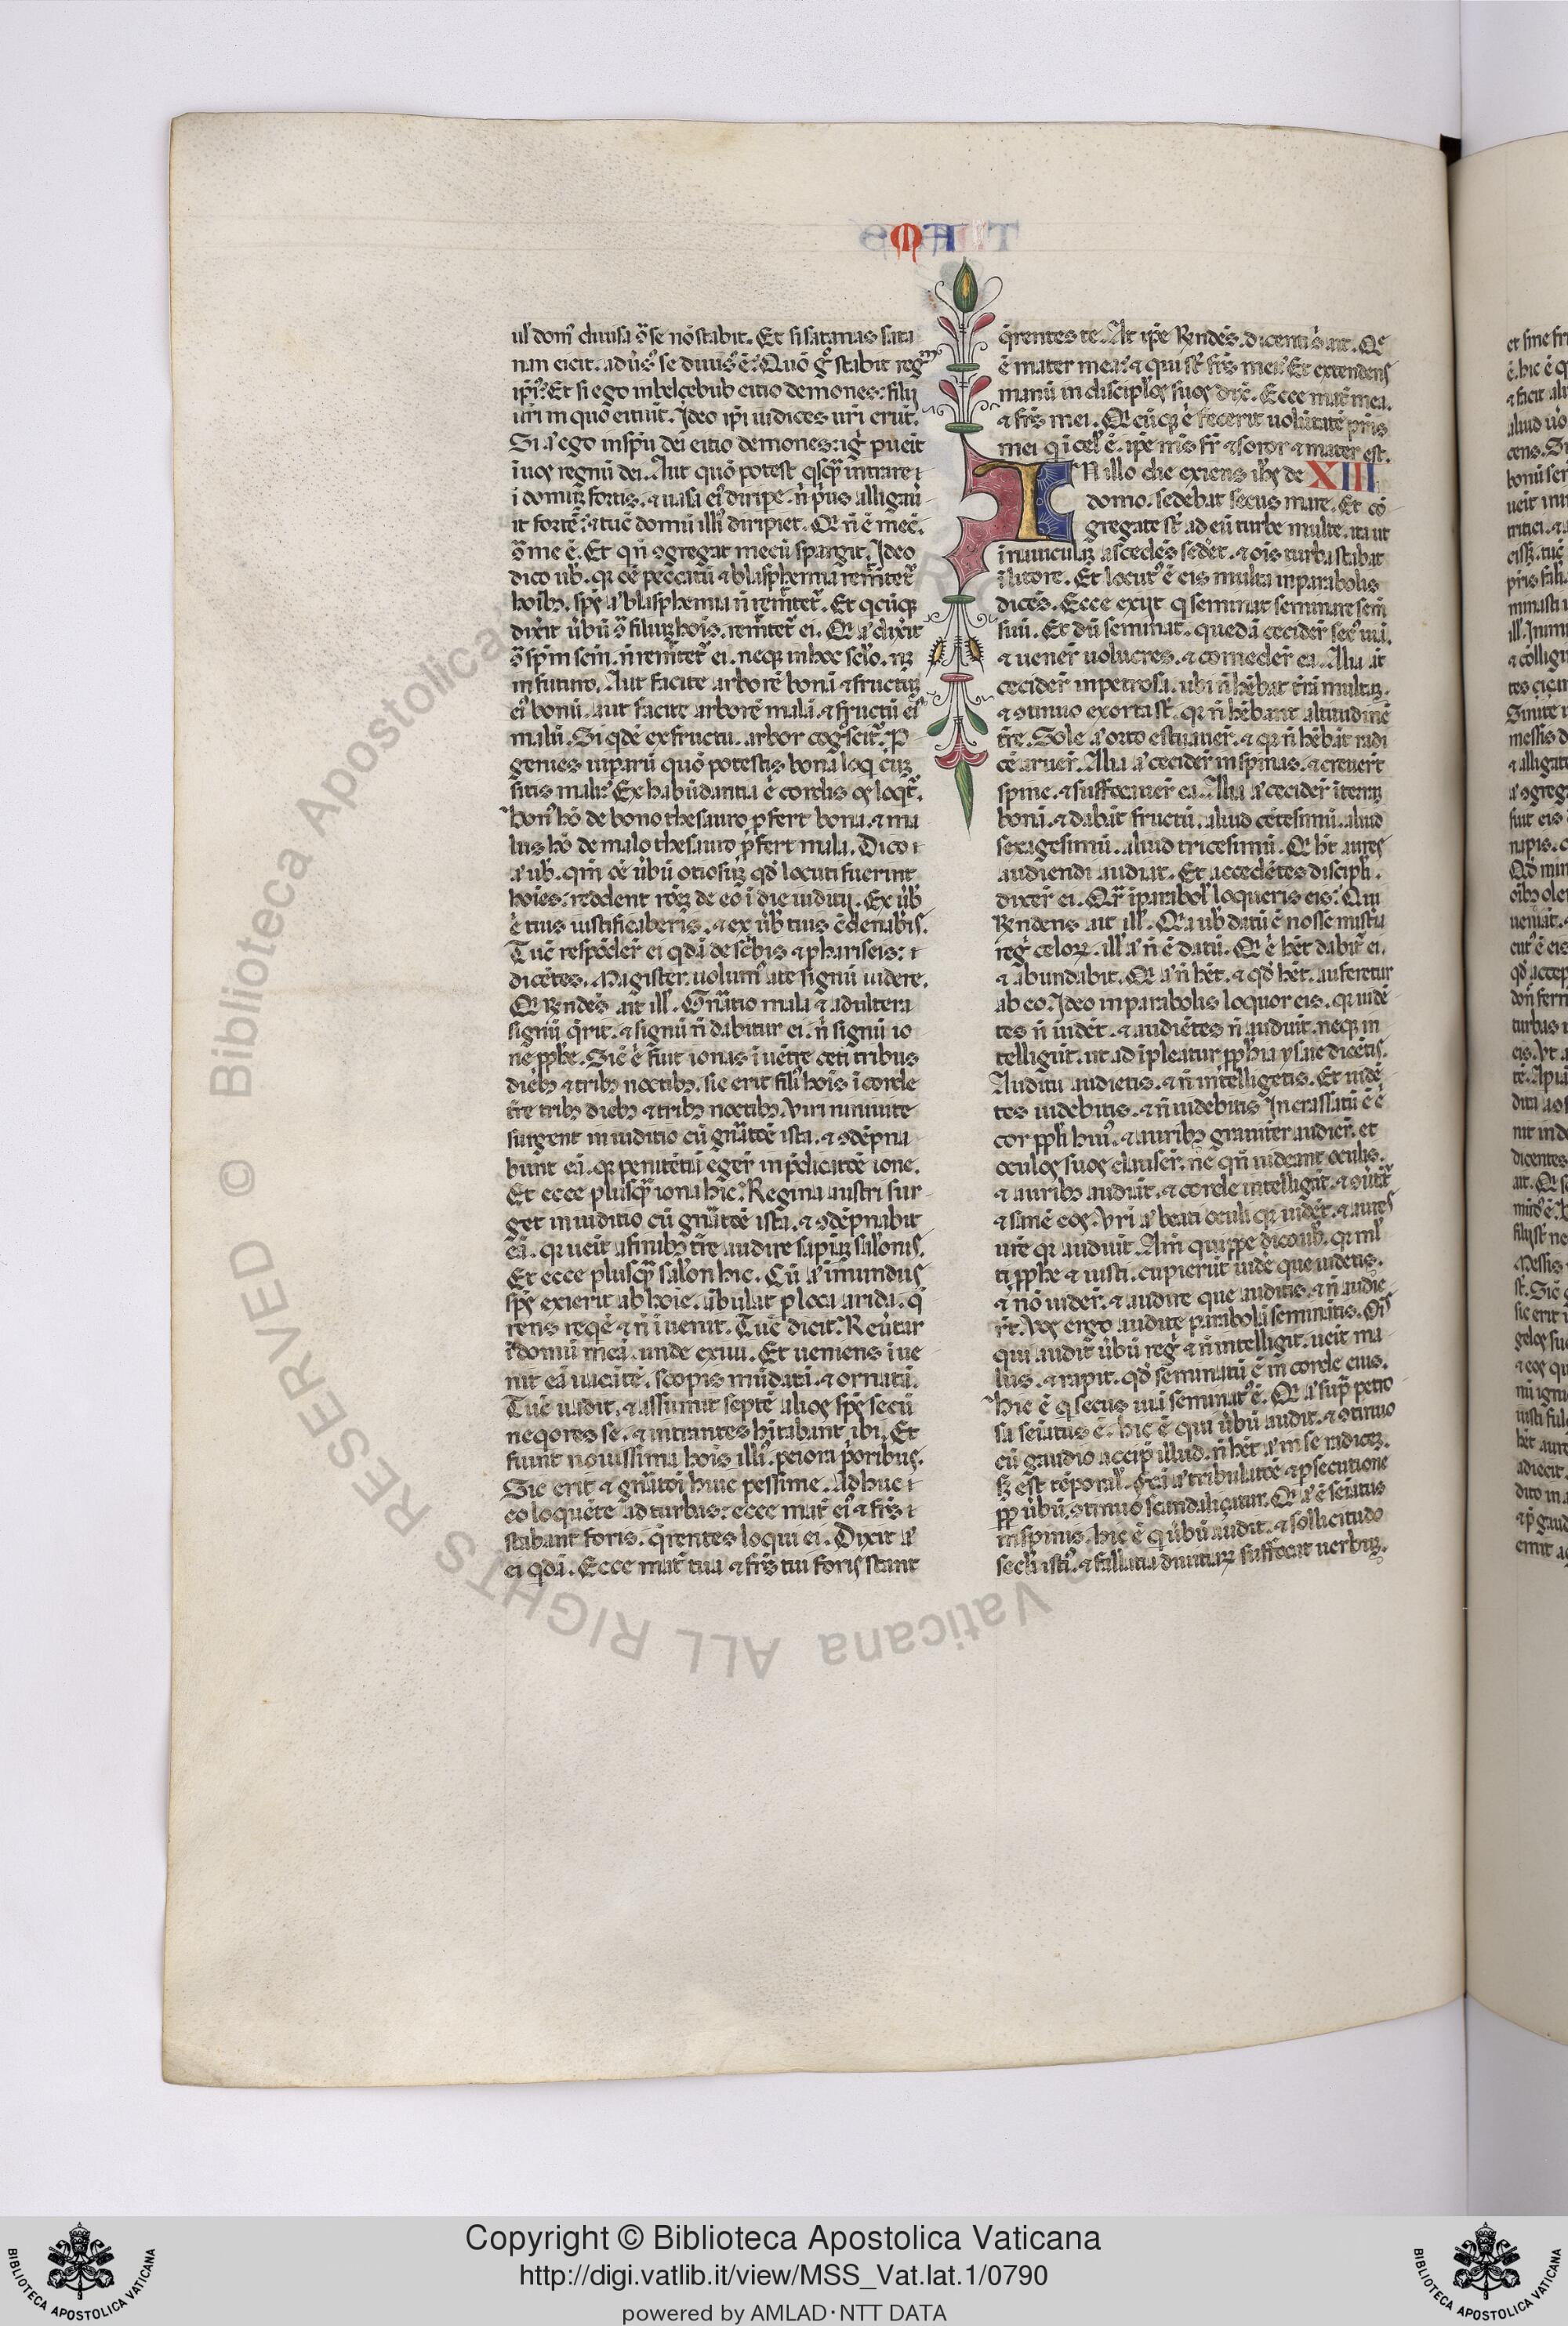 M A
ul dom̄ diuisa ɔ̄ se nō stabit. Et si satanas sata
nan eicit. aduˀsˀ se diuisˀ ē. Quō gͦ stabit regm̄
ip̄iˀ? Et si ego in belçebub eitio demones: filij
uri in quo eitiūt. Ideo ip̄i iudices uri erūt.
Si aˀ ego in sp̄u dei eitio demones: igˀ pueit
i uos regnū dei. Aut quō potest qsq̄ intrare
i domuȝ fortis. ⁊ uasa eiˀ diripe. n̄ pˀus alligaū
it fortē: ⁊ tūc domū illiˀ diripiet. Qi n̄ ē mecū.
ɔ̄ me ē. Et qi n̄ ɔgregat mecū spargit. Ideo
dico ub̄. qr oē peccatū ⁊ blasphemia remitetˀ
hoībȝ. sp̄s aˀ blasphemia n̄ remitetˀ. Et qcūqȝ
dixit ūbū ɔ̄ filiuȝ hoīs. remitetˀ ei. Qi aˀ dixit
ɔ̄ sp̄m scm̄. n̄ remitetˀ ei. neqȝ in hoc seclo. nqȝ
in futuro. Aut facite arborē bonā ⁊ fructuȝ
eiˀ bonū. aut facite arborē malā. ⁊ fructū eiˀ
malū. Si qdē ex fructu. arbor cogscitˀ. P
genies uiparū quō potestis bona loq cūȝ
sitis mali? Ex habūdantia .e. cordis os loqtˀ.
bonˀ hō de bono thesauro pfert bona. ⁊ ma
lus hō de malo thesauro pfert mala. Dico
aˀ ub̄. qm̄ oē ūbū otiosuȝ qd̄ locuti fuerint
hoīes: reddent rōȝ de eō i die iuditij. Ex ūb
.e. tuis iustificaberis. ⁊ ex ūb tuis ɔdēnabis.
Tūc respōderˀ ei qdā de scˀbis ⁊ phariseis:
dicētes. Magister. uolumˀ a te signū uidere.
Qi Rendēs ait ill. Gnˀatio mala ⁊ adultera
signū qˀrit. ⁊ signū n̄ dabitur ei. n̄ signū io
ne pphe. Sic .e. fuit ionas i uētre ceti tribus
diebȝ ⁊ tribȝ noctibȝ. sic erit filiˀ hoīs i corde
tr̄e tribȝ diebȝ ⁊ tribȝ noctibȝ. Viri niniuite
surgent in iuditio cū gnˀatōē ista. ⁊ ɔdēpna
bunt eā. qr penitētiā egerˀ in pˀdicatōē ione.
Et ecce plusq̄ iona hic. Regina austri sur
get in iuditio cū gnˀatōē ista. ⁊ ɔdēpnabit
eā. qr ueit a finibȝ tr̄e audire sapiaȝ salōnis.
Et ecce plusq̄ salon hic. Cū aˀ imundus
sp̄s exierit ab hoīe. ābulat p loca arida. q
rens reqē ⁊ n̄ iuenit. Tūc dicit. Reūtar
i domū meā. unde exiui. Et ueniens iue
nit eā uacātē. scopis mūdatā. ⁊ ornatā.
Tūc uadit. ⁊ assumit septē alios sp̄s secū
neqores se. ⁊ intrantes hitabant ibi. Et
fiunt nouissima hoīs illiˀ. peiora pˀoribus.
Sic erit ⁊ gnˀatōi huic pessime. Adhuc
eo loquēte ad turbas: ecce matˀ eiˀ ⁊ fr̄s
stabant foris. qˀrentes loqui ei. Dixit aˀ
ei qdā. Ecce matˀ tua ⁊ fr̄s tui foris stant
qˀrentes te. At ip̄e Rendēs. dicenti s. ait. Qe
ē mater mea? ⁊ qui st̄ fr̄s mei? Et extendens
manū in disciplos suos dixˀ. Ecce matˀ mea.
⁊ fr̄s mei. Qicūqȝ .e. fecerit uolūtatē pris
mei q i cel ē. ip̄e m̄s fr̄ ⁊ soror ⁊ mater est.
IN illo die exiens ih̄s de XIII
domo. sedebat secus mare. Et cō
gregate st̄ ad eū turbe multe. ita ut
in nauiculaȝ ascēdēs sedet. ⁊ oīs turba stabat
i litore. Et locutˀ ē eis multa in parabolis
dicēs. Ecce exijt q seminat seminare sem̄
suū. Et dū seminat. quedā ceciderˀ secˀ uiā.
⁊ uenerˀ uolucres. ⁊ comederˀ ea. Alia at
ceciderˀ in petrosa. ubi n̄ hēbat trā multaȝ.
⁊ ɔtinuo exorta st̄. qr n̄ hēbant altitudinē
tr̄e. Sole aˀ orto estuauerˀ. ⁊ qr n̄ hēbāt radi
cē aruerˀ. Alia aˀ ceciderˀ in spinas. ⁊ creuerˀt
spine. ⁊ suffocauerˀ ea. Alia aˀ ceciderˀ i terraȝ
bonā. ⁊ dabāt fructū. aliud cētesimū. aliud
sexagesimū. aliud tricesimū. Qi ht̄ aures
audiendi audiat. Et accedētes discipli.
dixerˀ ei. Qr̄ i parabol loqueris eis? Qui
Rendens ait ill. Qia ub̄ datū ē nosse mistia
regˀ celorȝ. ill aˀ n̄ ē datū. Qi .e. hēt dabitˀ ei.
⁊ abundabit. Qi aˀ n̄ hēt. ⁊ qd̄ hēt. auferetur
ab eo. Ideo in parabolis loquor eis. qr uidē
tes n̄ uidēt. ⁊ audiētes n̄ audiūt. neqȝ in
telligūt. ut adipleatur pphia ysaie dicētis.
Auditu audietis. ⁊ n̄ intelligetis. Et uidē
tes uidebitis. ⁊ n̄ uidebitis. Incrassatū ē .e.
cor ppli huiˀ. ⁊ auribȝ grauiter audierˀ. et
oculos suos clauserˀ. ne qn̄ uideant oculis.
⁊ auribȝ audiāt. ⁊ corde intelligāt. ⁊ ɔūtātˀ
⁊ sanē eos. Vri aˀ beati oculi qr uidēt. ⁊ aures
ur̄e qr audiūt. Am̄ quippe dico ub̄. qr ml
ti pphe ⁊ iusti. cupierūt uidē que uidetis.
⁊ nō uiderˀ. ⁊ audire que auditis. ⁊ n̄ audie
rt̄. Vos ergo audite parabolā seminatis. Oīs
qui audit ūbū regˀ ⁊ n̄ intelligit. ueit ma
lus. ⁊ rapit. qd̄ seminatū ē in corde eius.
Hic ē q secus uiā seminatˀ ē. Qi aˀ supˀ petro
sa seiatus ē. hic ē qui ūbū audit. ⁊ ɔtinuo
cū gaudio accipˀ illud. n̄ hēt aˀ in se radiceȝ.
sȝ est tēporal. Fcā aˀ tribulatōē ⁊ psecutione
pp ūbū. ɔtinuo scandaliçatur. Qi aˀ ē seiatus
in spinis. hic ē q ūbū audit. ⁊ sollicitudo
secli istiˀ. ⁊ fallatia diuitiarȝ suffocat uerbuȝ.
© Biblioteca Apostolica Vaticana ALL RIGHTS RESERVED
Copyright © Biblioteca Apostolica Vaticana
http://digi.vatlib.it/view/MSS_Vat.lat.1/0790
powered by AMLAD・NTT DATA
BIBLIOTECA APOSTOLICA VATICANA
BIBLIOTECA APOSTOLICA VATICANA